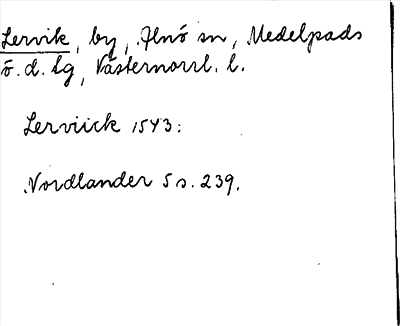 Lervik, by, Alnö sn, Medelpads
ö. d. lg, Västernorrl. l.
Lerviick 1543:
Nordlander 5 s. 239.